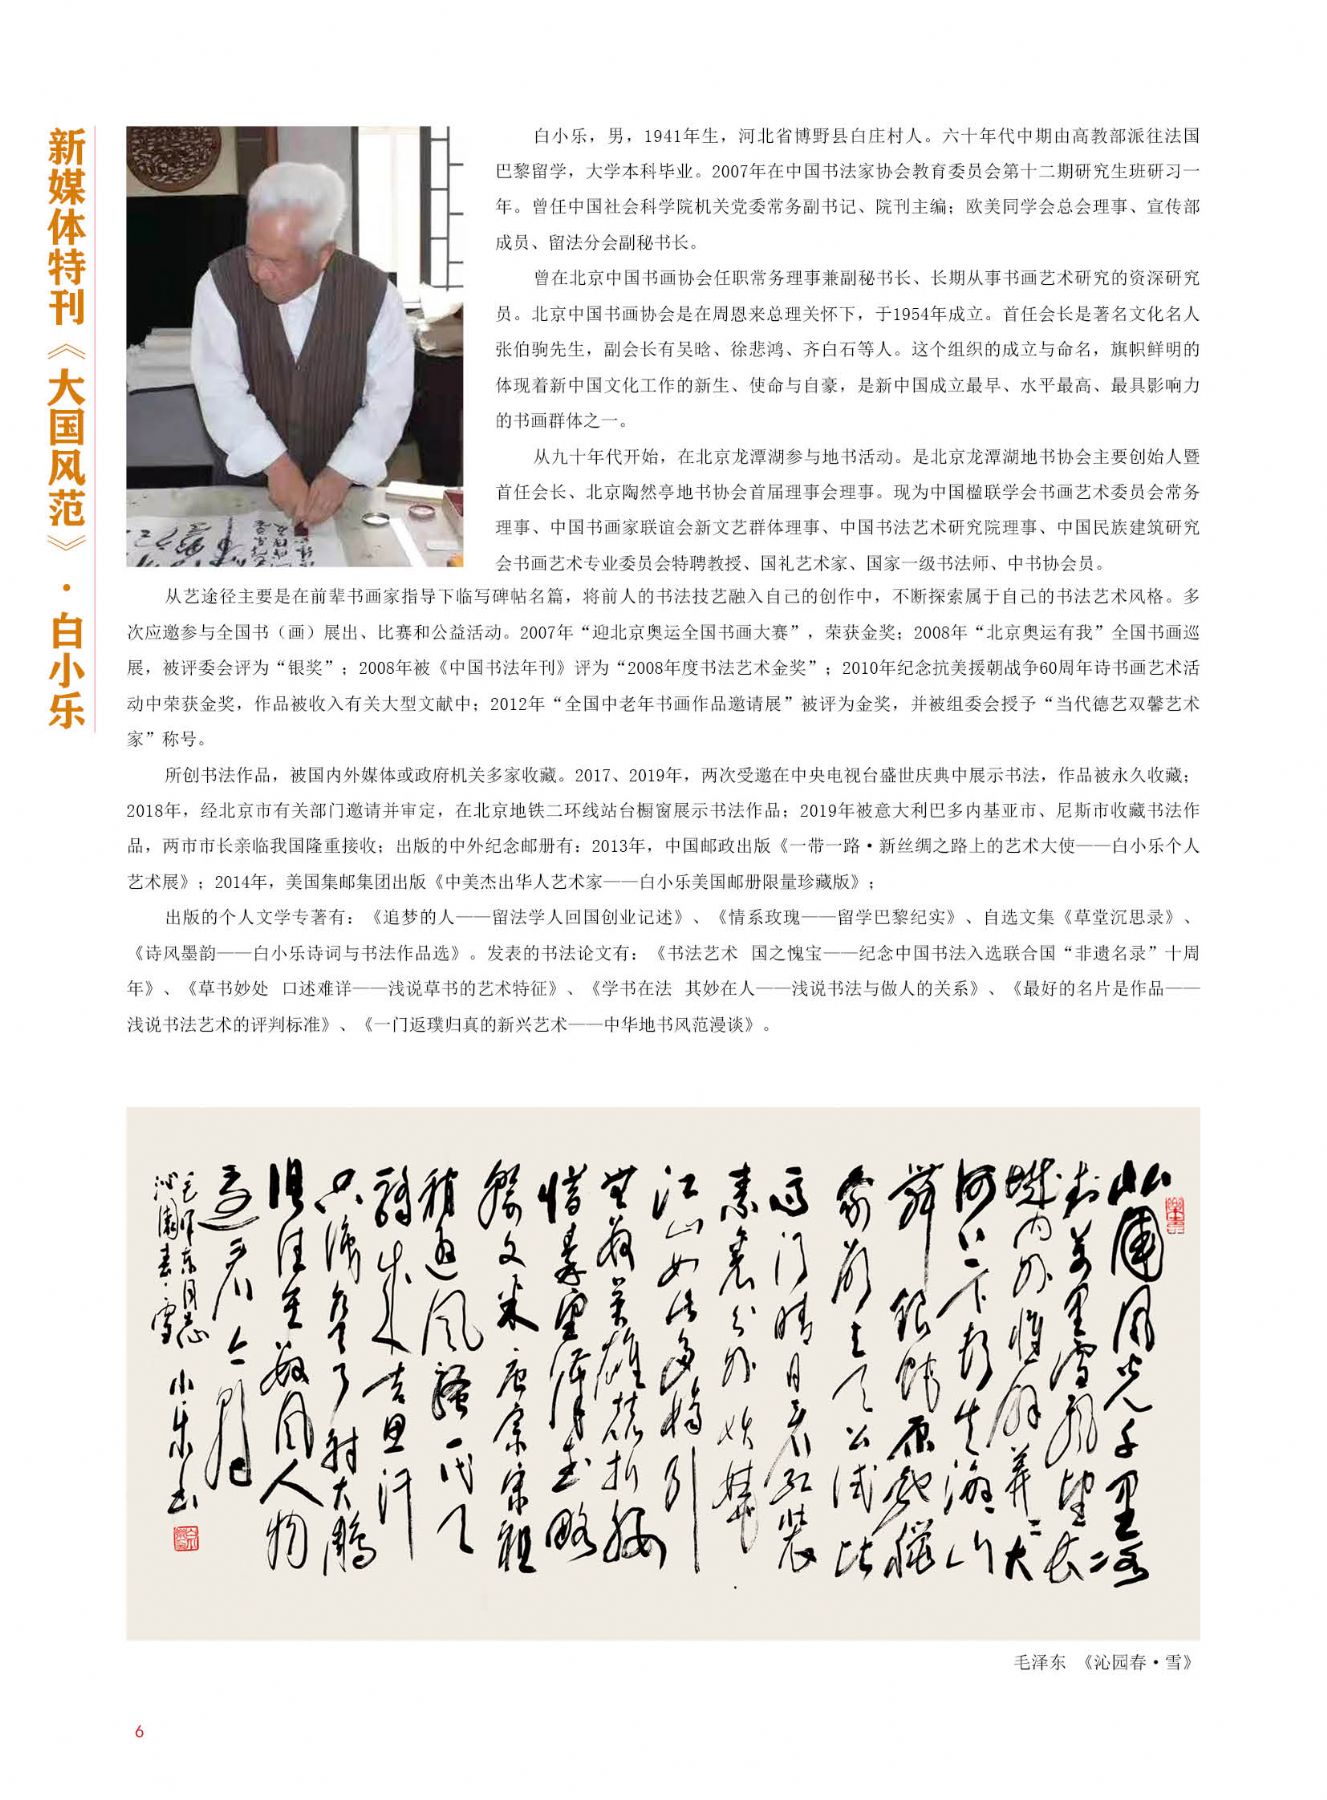 新媒体特刊《大国风范》·白小乐
白小乐，男，1941年生，河北省博野县白庄村人。六十年代中期由高教部派往法国
巴黎留学，大学本科毕业。2007年在中国书法家协会教育委员会第十二期研究生班研习一
年。曾任中国社会科学院机关党委常务副书记、院刊主编；欧美同学会总会理事、宣传部
成员、留法分会副秘书长。
曾在北京中国书画协会任职常务理事兼副秘书长、长期从事书画艺术研究的资深研究
员。北京中国书画协会是在周恩来总理关怀下，于1954年成立。首任会长是著名文化名人
张伯驹先生，副会长有吴晗、徐悲鸿、齐白石等人。这个组织的成立与命名，旗帜鲜明的
体现着新中国文化工作的新生、使命与自豪，是新中国成立最早、水平最高、最具影响力
的书画群体之一。
从九十年代开始，在北京龙潭湖参与地书活动。是北京龙潭湖地书协会主要创始人暨
首任会长、北京陶然亭地书协会首届理事会理事。现为中国楹联学会书画艺术委员会常务
理事、中国书画家联谊会新文艺群体理事、中国书法艺术研究院理事、中国民族建筑研究
会书画艺术专业委员会特聘教授、国礼艺术家、国家一级书法师、中书协会员。
从艺途径主要是在前辈书画家指导下临写碑帖名篇，将前人的书法技艺融入自己的创作中，不断探索属于自己的书法艺术风格。多
次应邀参与全国书（画）展出、比赛和公益活动。2007年“迎北京奥运全国书画大赛”，荣获金奖；2008年“北京奥运有我”全国书画巡
展，被评委会评为“银奖”；2008年被《中国书法年刊》评为“2008年度书法艺术金奖”；2010年纪念抗美援朝战争60周年诗书画艺术活
动中荣获金奖，作品被收入有关大型文献中；2012年“全国中老年书画作品邀请展”被评为金奖，并被组委会授予“当代德艺双馨艺术
家”称号。
所创书法作品，被国内外媒体或政府机关多家收藏。2017、2019年，两次受邀在中央电视台盛世庆典中展示书法，作品被永久收藏；
2018年，经北京市有关部门邀请并审定，在北京地铁二环线站台橱窗展示书法作品；2019年被意大利巴多内基亚市、尼斯市收藏书法作
品，两市市长亲临我国隆重接收；出版的中外纪念邮册有：2013年，中国邮政出版《一带一路·新丝绸之路上的艺术大使——白小乐个人
艺术展》；2014年，美国集邮集团出版《中美杰出华人艺术家——白小乐美国邮册限量珍藏版》；
出版的个人文学专著有：《追梦的人——留法学人回国创业记述》、《情系玫瑰——留学巴黎纪实》、自选文集《草堂沉思录》、
《诗风墨韵——白小乐诗词与书法作品选》。发表的书法论文有：《书法艺术 国之愧宝——纪念中国书法入选联合国“非遗名录”十周
年》、《草书妙处 口述难详——浅说草书的艺术特征》、《学书在法 其妙在人——浅说书法与做人的关系》、《最好的名片是作品——
浅说书法艺术的评判标准》、《一门返璞归真的新兴艺术——中华地书风范漫谈》。
北国风光千里冰
封万里雪飘望长
城内外惟余莽莽大
河上下顿失滔滔山
舞银蛇原驰蜡
象欲与天公试比
高须晴日看红装
素裹分外妖娆
江山如此多娇引
无数英雄竞折腰
惜秦皇汉武略
输文采唐宗宋祖
稍逊风骚一代天
骄成吉思汗
只识弯弓射大雕
俱往矣数风流人物
还看今朝
毛泽东同志
沁园春·雪
小乐书
毛泽东 《沁园春·雪》
6